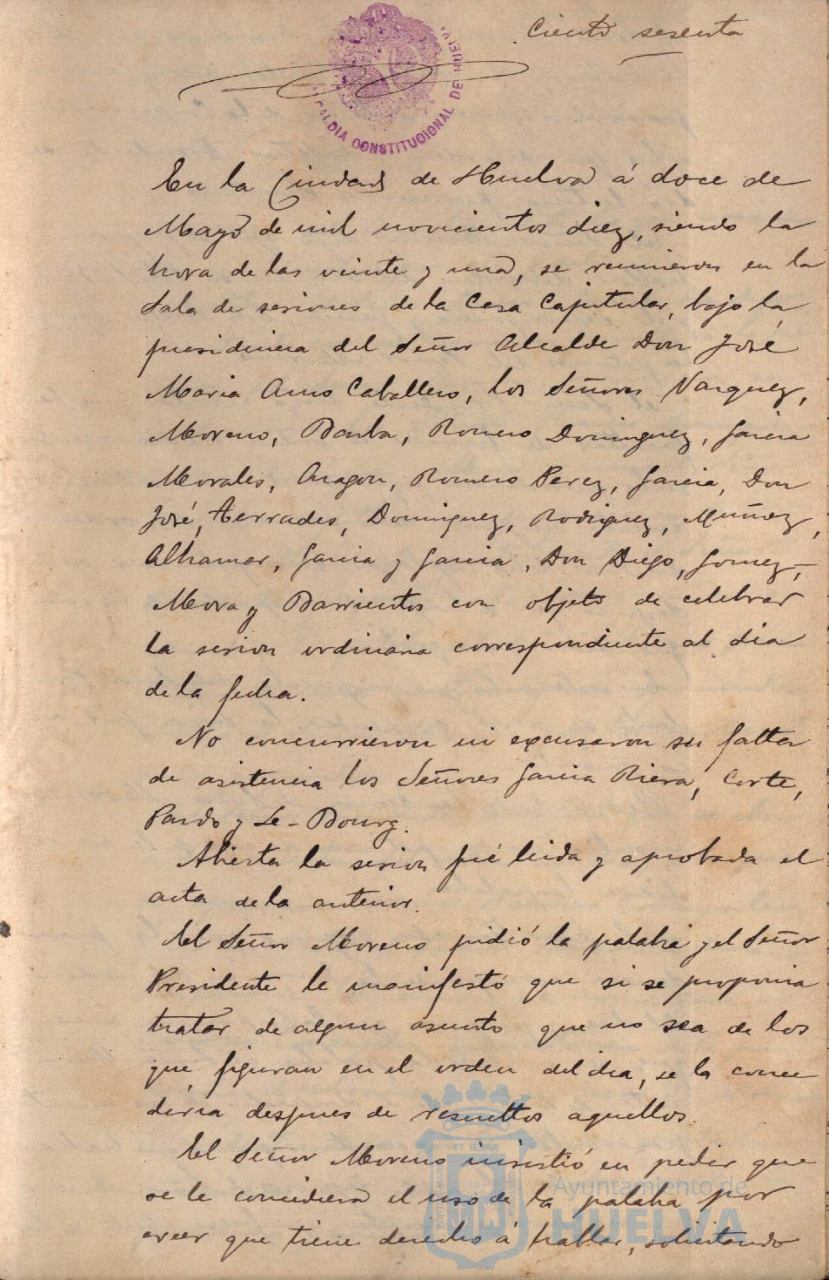 Ciento sesenta
ALCALDIA CONSTITUCIONAL DE HUELVA
En la Ciudad de Huelva á doce de
Mayo de mil novicientos diez, siendo la
hora de las veinte y una, se reunieron en la
Sala de sesiones de la Casa Capitular, bajo la
presidencia del Señor Alcalde Don José
Maria Amo Caballero, los Señores Vazquez,
Moreno, Barba, Romero Dominguez, Garcia
Morales, Aragon, Romero Perez, Garcia, Don
José, Terrades, Dominguez, Rodriguez, Muñoz,
Alhamar, Garcia y Garcia, Don Diego, Gomez,
Mora y Barrientos con objeto de celebrar
la sesion ordinaria correspondiente al dia
de la fecha.
No concurrieron ni excusaron su falta
de asistencia los Señores Garcia Riera, Corte,
Pardo y Le-Bourg.
Abierta la sesion fué leida y aprobada el
acta de la anterior.
El Señor Moreno pidió la palabra y el Señor
Presidente le manifestó que si se proponia
tratar de algun asunto que no sea de los
que figuran en el orden del dia, se la conce
deria despues de resueltos aquellos.
El Señor Moreno insistió en pedir que
se le concediera el uso de la palabra por
creer que tiene derecho á hablar, solicitando
Ayuntamiento de
HUELVA